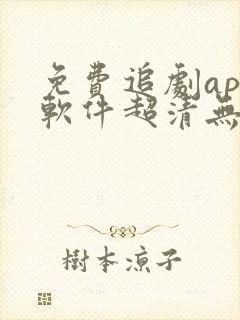 免費追劇ap
軟件超清無
樹本涼子